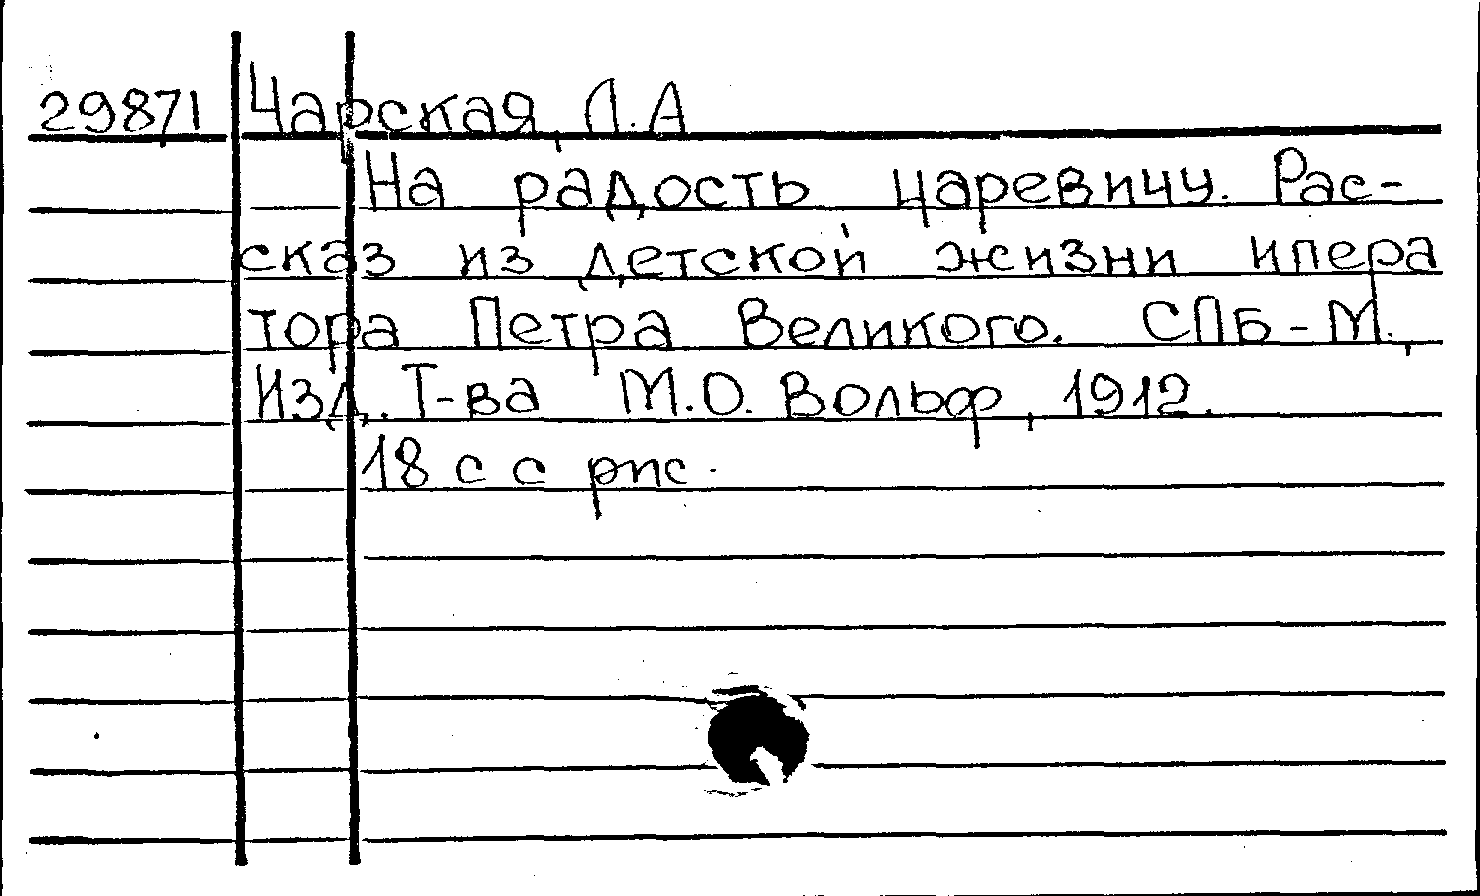 29871 Чарская, Л.А
На радость царевичу. Рас-
сказ из детской жизни ипера
тора Петра Великого. СПБ-М.,
Изд. Т-ва М.О. Вольф, 1912.
18 с с рис.